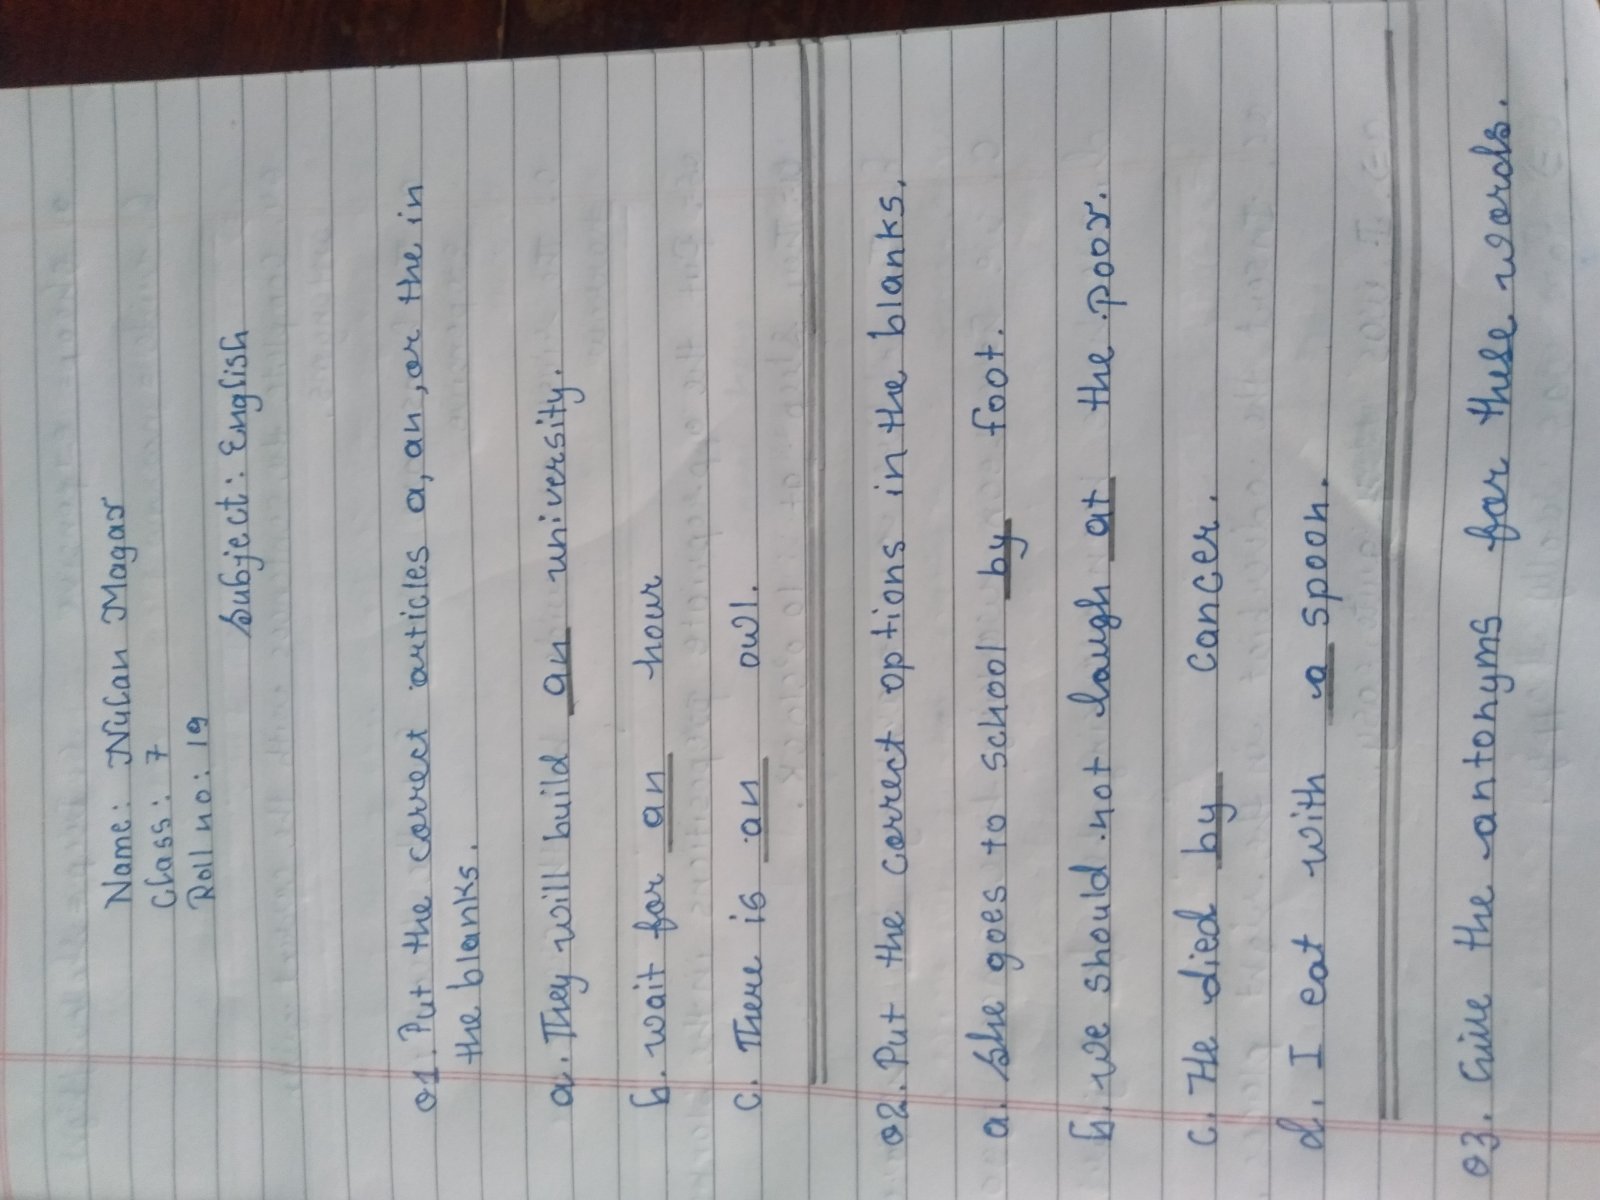 Name: Nilan Magar
Class: 7
Roll no: 19
Subject: English
01. Put the correct articles a, an, or the in
the blanks.
a. They will build an university.
b. wait for an hour
c. There is an owl.
02. Put the correct options in the blanks.
a. She goes to school by foot.
b. we should not laugh at the poor.
c. He died by cancer.
d. I eat with a spoon.
03. Give the antonyms for these words.